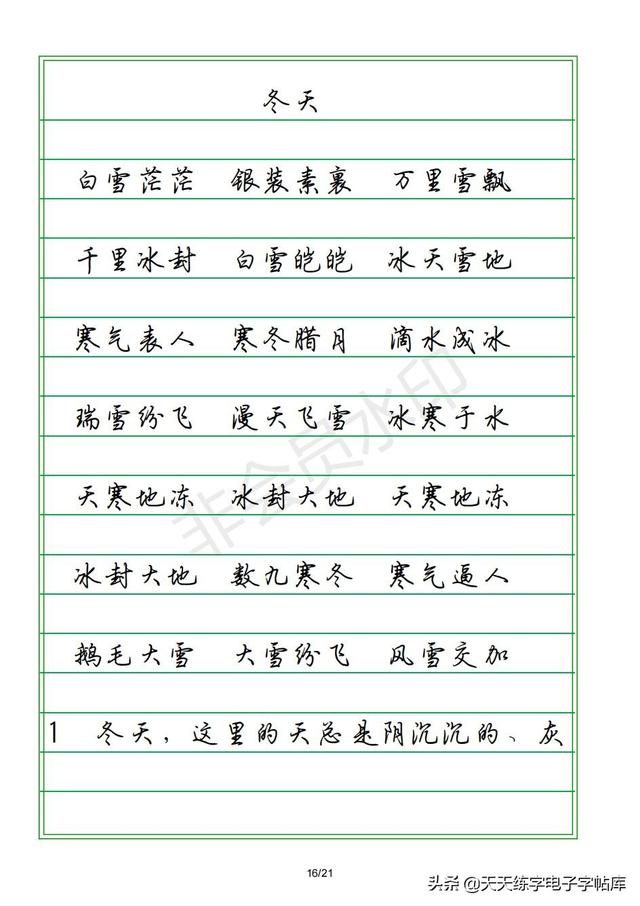 冬天
白雪茫茫 银装素裹 万里雪飘
千里冰封 白雪皑皑 冰天雪地
寒气表人 寒冬腊月 滴水成冰
瑞雪纷飞 漫天飞雪 冰寒于水
天寒地冻 冰封大地 天寒地冻
冰封大地 数九寒冬 寒气逼人
鹅毛大雪 大雪纷飞 风雪交加
1 冬天，这里的天总是阴沉沉的、灰
非会员水印
16/21
头条 @天天练字电子字帖库